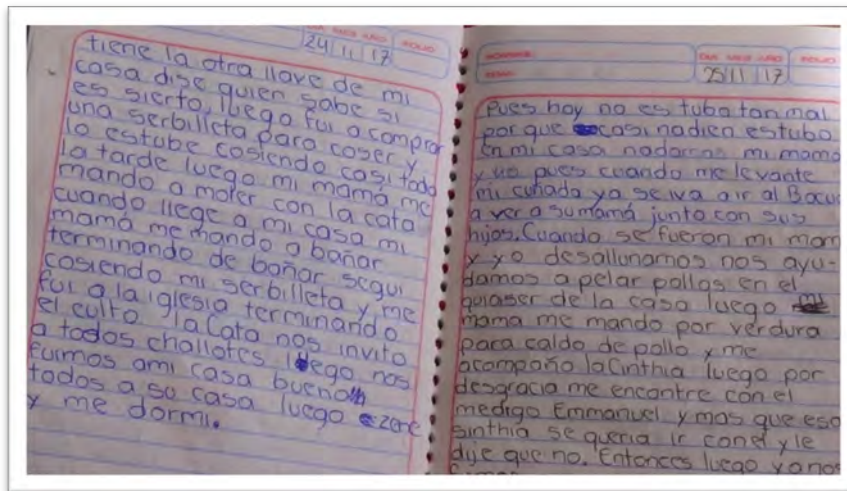 DIA MES AÑO FOLIO
24 11 17
tiene la otra llave de mi
casa dise quien sabe si
es sierto, luego fui a comprar
una serbilleta para coser y
lo estube cosiendo casi toda
la tarde luego mi mamá me
mando a moler con la cata
cuando llege a mi casa mi
mamá me mando a bañar
terminando de bañar segui
cosiendo mi serbilleta y me
fui a la iglesia terminando
el culto la Cata nos invito
a todos challotes luego nos
fuimos ami casa bueno
todos a su casa luego zene
y me dormi.
NOMBRE
TEMA
DIA MES AÑO FOLIO
25 11 17
Pues hoy no es tubo tan mal
por que casi nadien estubo
en mi casa nadamas mi mamá
y yo pues cuando me levante
mi cuñada ya se iva a ir al
a ver a su mamá junto con sus
hijos. Cuando se fueron mi mam
y yo desallunamos nos ayu-
damos a pelar pollos en el
quiaser de la casa luego
mama me mando por verdura
para caldo de pollo y me
acompaño la Cinthia luego por
desgracia me encontre con el
medigo Emmanuel y mas que eso
sinthia se queria ir con el y le
dije que no. Entonces luego ya nos